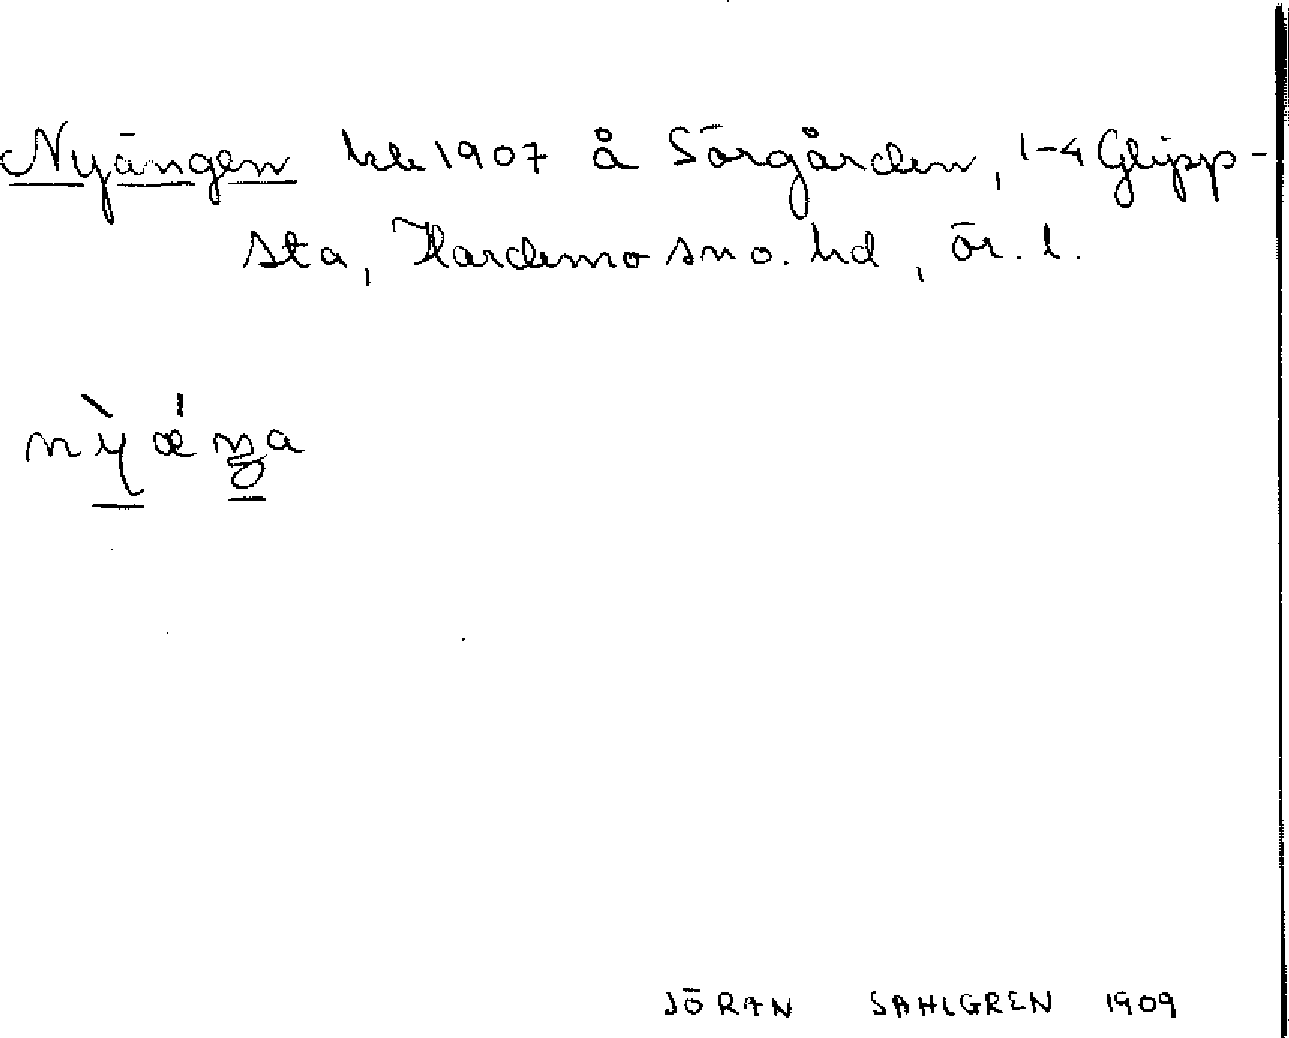 Nyängen 1907 å Sörgården, 1-4 Glipp-
sta, Hardemo sn o. hd, Ör. l.
JÖRAN SAHLGREN 1909